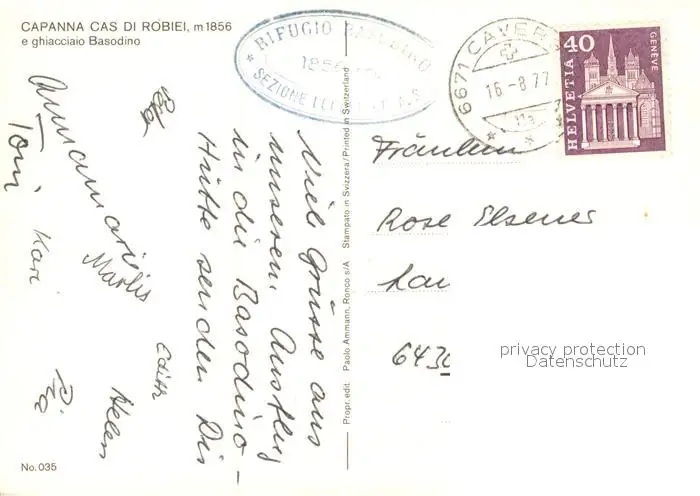 CAPANNA CAS DI ROBIEI, m 1856
e ghiacciaio Basodino
RIFUGIO BASODINO
1856
SEZIONE
6671 CAVER
16-8.77
HELVETIA 40
GENÈVE
Viele Grüsse aus
unserem Ausflug
in die Basodino-
Hütte senden Dir
Annamarie
Toni
Kari
Marlis
Edith
Helen
Pia
Fräulein
Rose Elsener
643
privacy protection
Datenschutz
Propr. edit. Paolo Ammann, Ronco s/A Stampato in Svizzera/Printed in Switzerland
No. 035